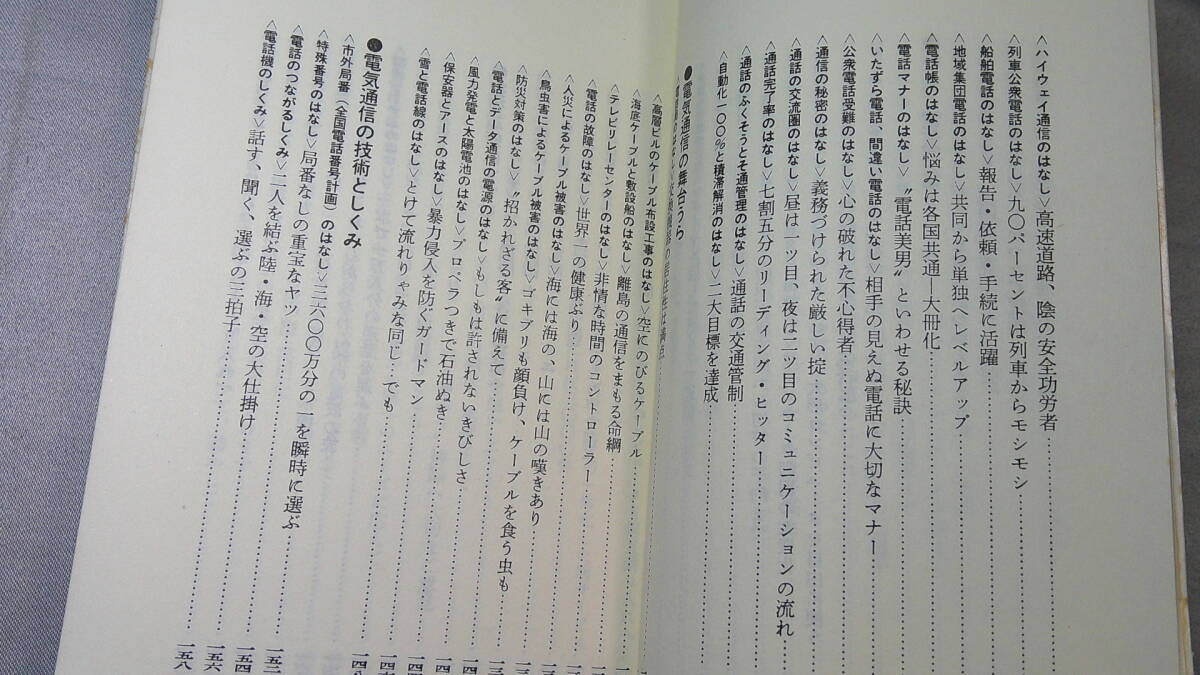 〈ハイウェイ通信のはなし〉高速道路、陰の安全功労者
〈列車公衆電話のはなし〉九〇パーセントは列車からモシモシ
〈船舶電話のはなし〉報告・依頼・手続に活躍
〈地域集団電話のはなし〉共同から単独へレベルアップ
〈電話帳のはなし〉悩みは各国共通—大冊化
〈電話マナーのはなし〉〝電話美男〟といわせる秘訣
〈いたずら電話、間違い電話のはなし〉相手の見えぬ電話に大切なマナー
〈公衆電話受難のはなし〉心の破れた不心得者
〈通信の秘密のはなし〉義務づけられた厳しい掟
〈通話の交流圏のはなし〉昼は一ツ目、夜は二ツ目のコミュニケーションの流れ
〈通話完了率のはなし〉七割五分のリーディング・ヒッター
〈通話のふくそうとそ通管理のはなし〉通話の交通管制
〈自動化一〇〇%と積滞解消のはなし〉二大目標を達成
●電気通信の舞台うら
〈高層ビルのケーブル布設工事のはなし〉空にのびるケーブル
〈海底ケーブルと敷設船のはなし〉離島の通信をまもる命綱
〈テレビリレーセンターのはなし〉非情な時間のコントローラー
〈電話の故障のはなし〉世界一の健康ぶり
〈人災によるケーブル被害のはなし〉海には海の、山には山の嘆きあり
〈鳥虫害によるケーブル被害のはなし〉ゴキブリも顔負け、ケーブルを食う虫も
〈防災対策のはなし〉〝招かれざる客〟に備えて
〈電話とデータ通信の電源のはなし〉もしもは許されないきびしさ
〈風力発電と太陽電池のはなし〉プロペラつきで石油ぬき
〈保安器とアースのはなし〉暴力侵入を防ぐガードマン
〈雪と電話線のはなし〉とけて流れりゃみな同じ…でも
●電気通信の技術としくみ
〈市外局番（全国電話番号計画）のはなし〉三六〇〇万分の一を瞬時に選ぶ
〈特殊番号のはなし〉局番なしの重宝なヤツ 一五二
〈電話のつながるしくみ〉二人を結ぶ陸・海・空の大仕掛け 一五四
〈電話機のしくみ〉話す、聞く、選ぶの三拍子 一五六
一五八